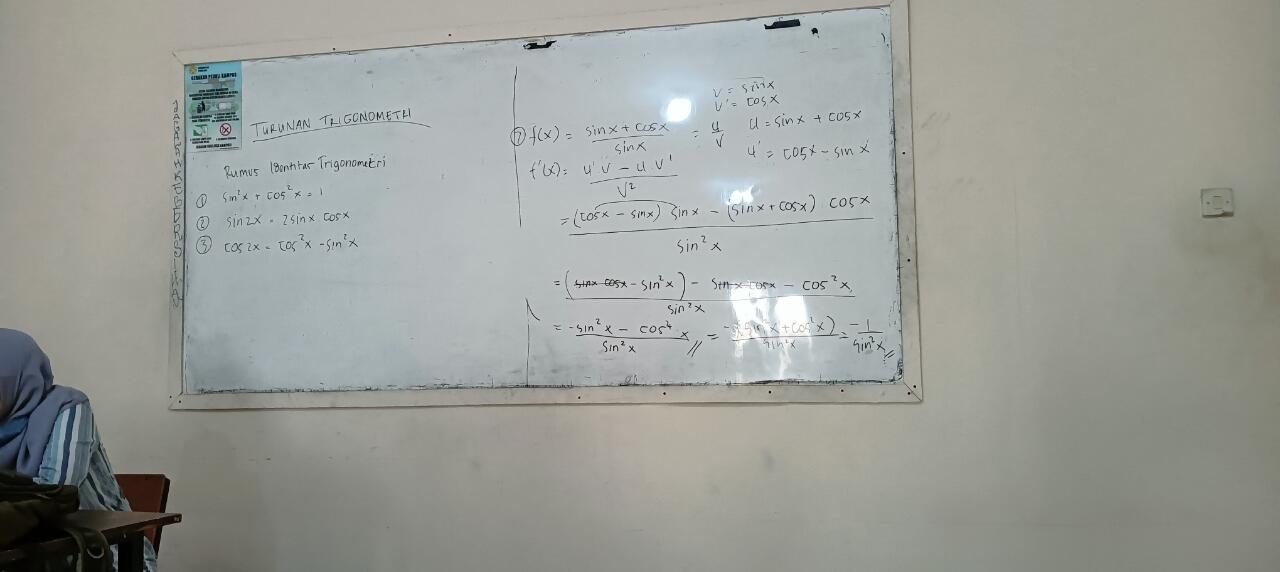 GERAKAN PEDULI KAMPUS
TURUNAN TRIGONOMETRI
Rumus Identitas Trigonometri
① sin²x + cos²x = 1
② sin2x = 2sinx cosx
③ cos2x = cos²x - sin²x
v = sinx
v' = cosx
⑦ f(x) = (sinx + cosx)/sinx = u/v u = sinx + cosx
f'(x) = (u'v - uv')/v² u' = cosx - sinx
= ((cosx - sinx) sinx - (sinx + cosx) cosx)/sin²x
= ((sinx cosx - sin²x) - sinx cosx - cos²x)/sin²x
= (-sin²x - cos²x)/sin²x // = -(sin²x + cos²x)/sin²x = -1/sin²x //